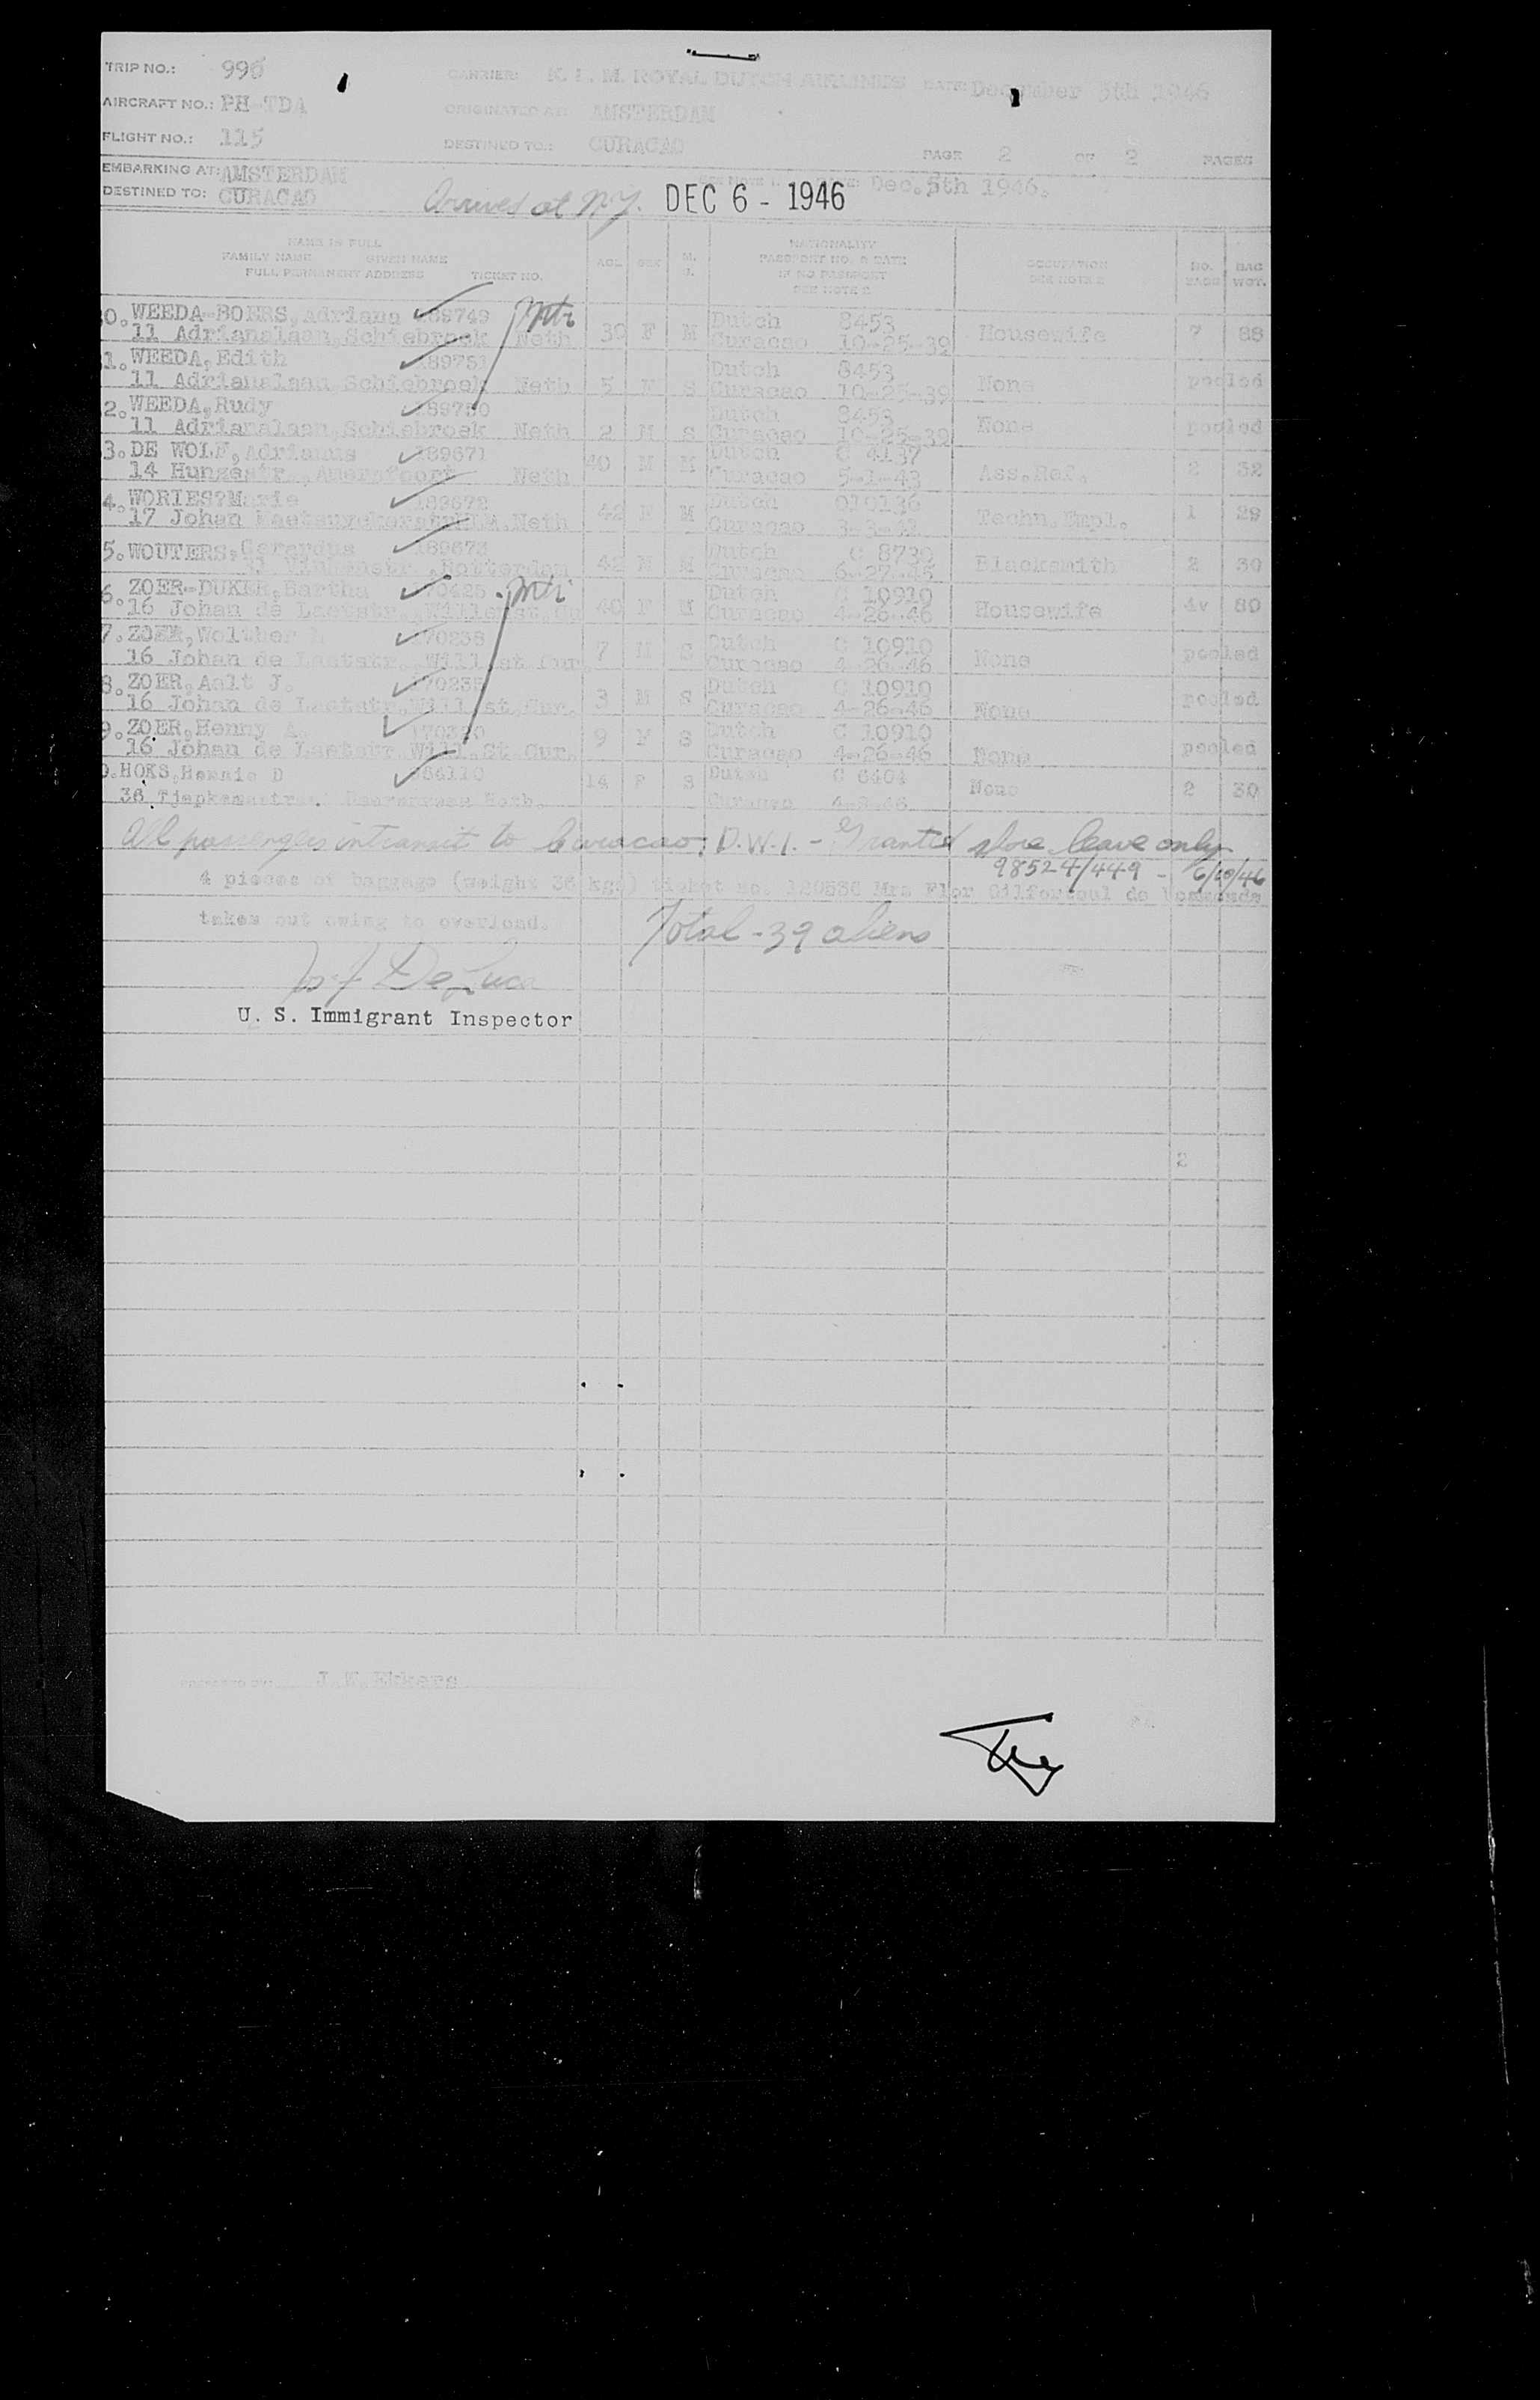 TRIP NO.: 996 CARRIER: K. L. M. ROYAL DUTCH AIRLINES DATE: December 5th 1946
AIRCRAFT NO.: PH-TDA ORIGINATED AT: AMSTERDAM
FLIGHT NO.: 115 DESTINED TO: CURACAO PAGE 2 OF 2 PAGES
EMBARKING AT: AMSTERDAM Dec. 5th 1946.
DESTINED TO: CURACAO Arrived at N.Y. DEC 6 - 1946
NAME IN FULL NATIONALITY
FAMILY NAME GIVEN NAME AGE SEX M. PASSPORT NO. & DATE OCCUPATION NO. BAG
FULL PERMANENT ADDRESS TICKET NO. S. IF NO PASSPORT SEE NOTE 2 BAGS WGT.
SEE NOTE 2
0. WEEDA-BOERS, Adriana 189749 Dutch 8453
11 Adrianalaan, Schiebroek Neth 39 F M Curacao 10-25-39 Housewife 7 88
1. WEEDA, Edith 189751 Dutch 8453
11 Adrianalaan, Schiebroek Neth 5 F S Curacao 10-25-39 None pooled
2. WEEDA, Rudy 189750 Dutch 8453
11 Adrianalaan, Schiebroek Neth 2 M S Curacao 10-25-39 None pooled
3. DE WOLF, Adrianus 189671 Dutch C 4137
14 Hunzestr., Amersfoort Neth 40 M M Curacao 5-1-43 Ass. Ref. 2 32
4. WORIES?Marie 189672 Dutch 010136
17 Johan Neth 42 F M Curacao Techn. Empl. 1 29
5. WOUTERS, Gerardus 189673 Dutch C 8730
Rotterdam 42 M M Curacao 6-27-45 Blacksmith 2 30
6. ZOER-DUKER, Bartha 70425 Dutch C 10910
16 Johan de Laetstr., Willemst, 40 F M Curacao 4-26-46 Housewife 4v 80
7. ZOER, Wolther 70238 Dutch C 10910
16 Johan de Laetstr., Will.st Cur. 7 M S Curacao 4-26-46 None pooled
8. ZOER, Aalt J. Dutch C 10910
16 Johan de Laetstr. Will.st. Cur. 3 M S Curacao 4-26-46 None pooled
9. ZOER, Henny A. Dutch C 10910
16 Johan de Laetstr. Will.St. Cur. 9 F S Curacao 4-26-46 None pooled
0. HOKS, Hennie D Dutch C 6404
36 Neth. 14 F S Curacao None 2 30
All passengers intransit to Curacao, D.W.I. - Granted shore leave only
98524/449 - 6/10/46
4 pieces of baggage (weight 36 kgs) ticket no. 120536 Mrs Flor Gilfortoul de
taken out owing to overload. Total - 39 aliens
DeLuca
U. S. Immigrant Inspector
2
PREPARED BY: J.W. Ekkers